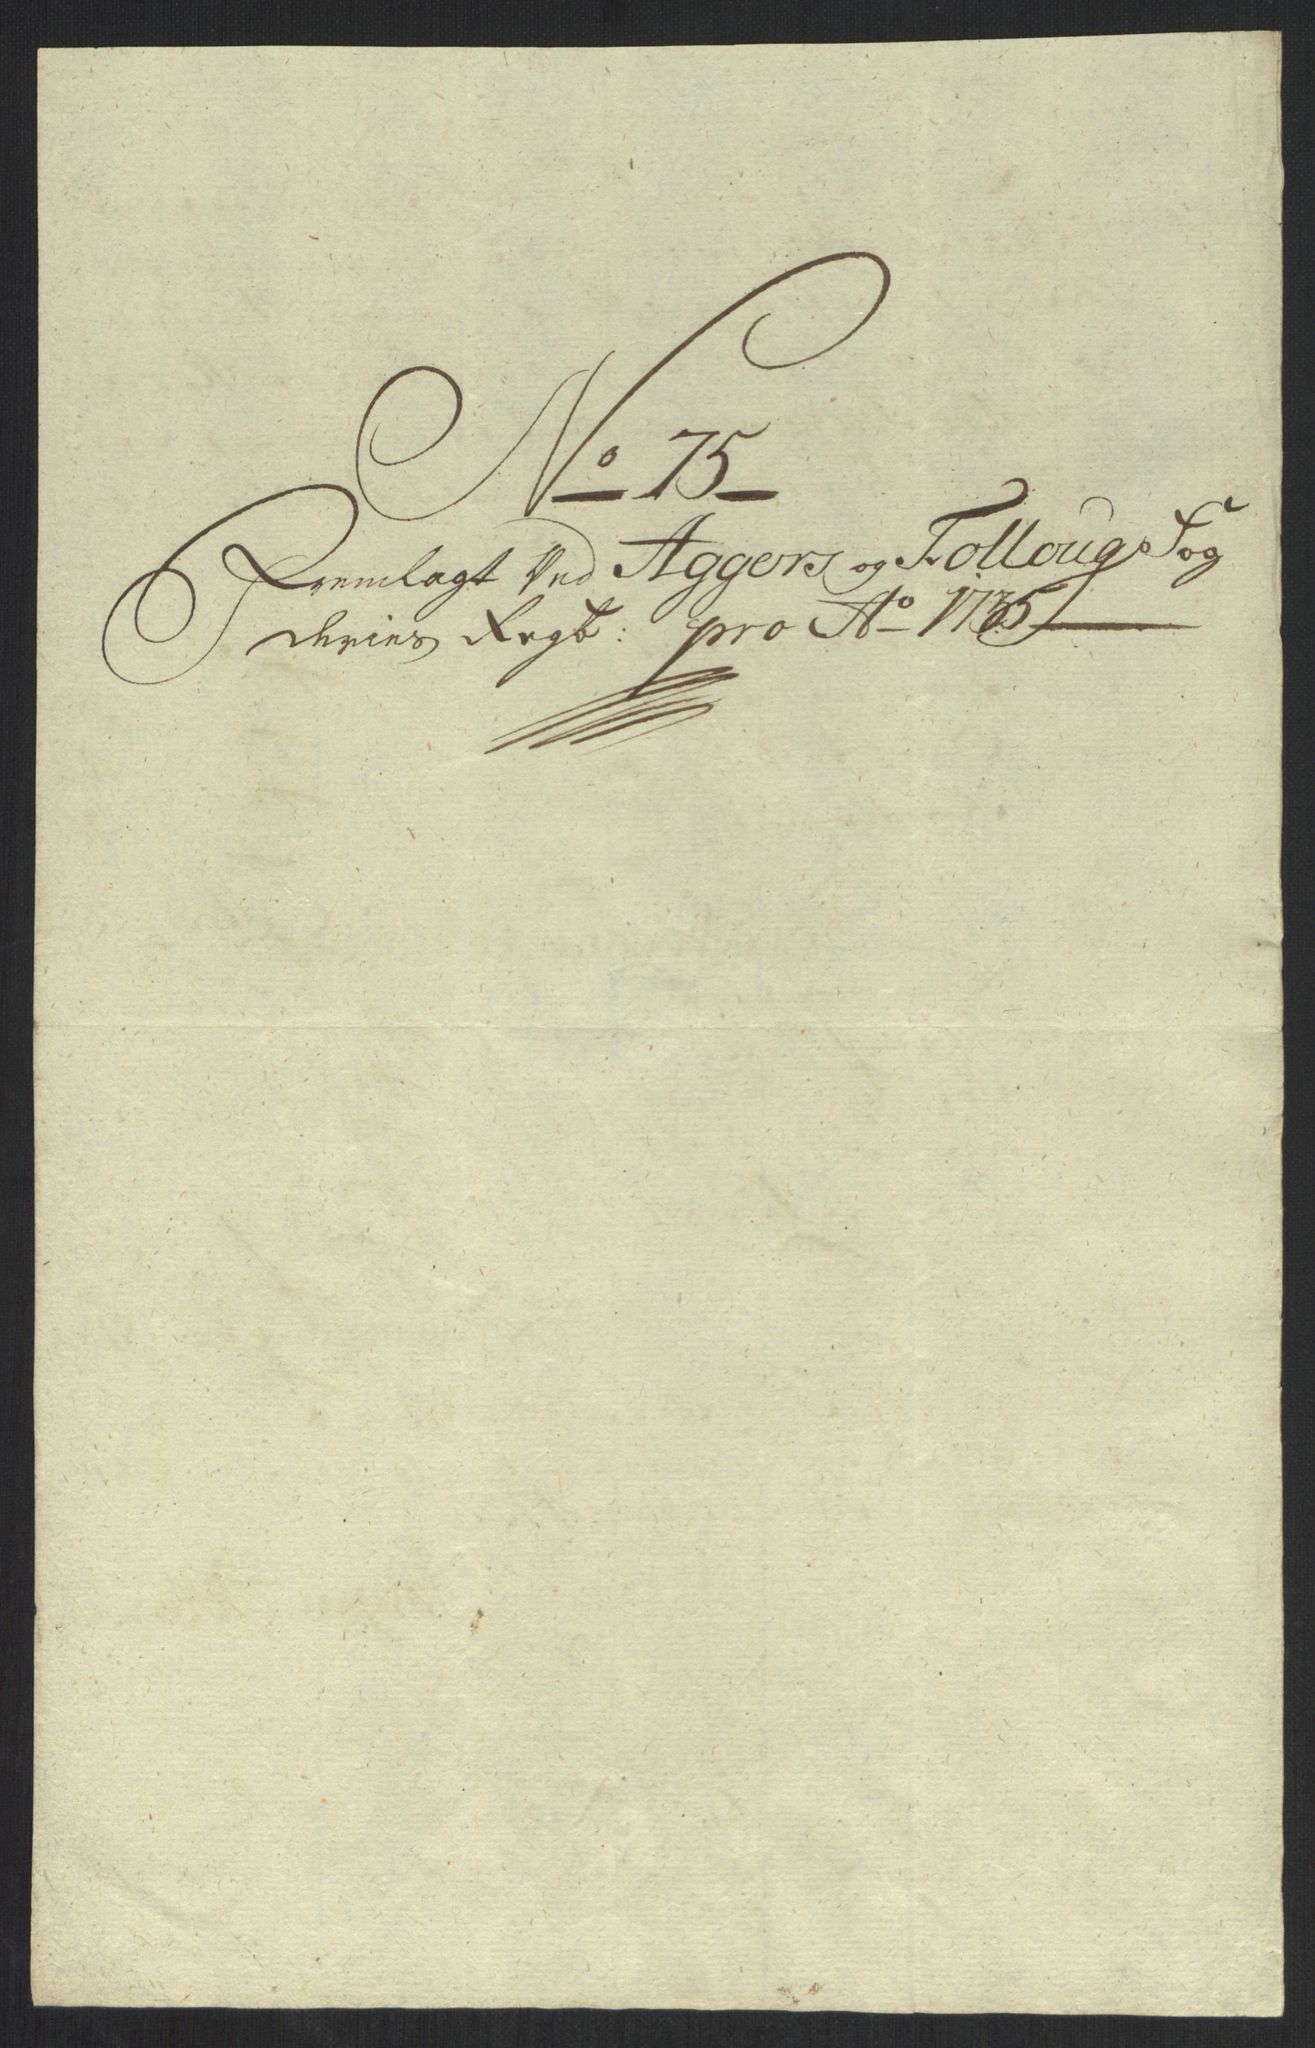 No 75
Fremlagt Ved Aggers og Folloug Fog
deries Regb: pro Ao 1735